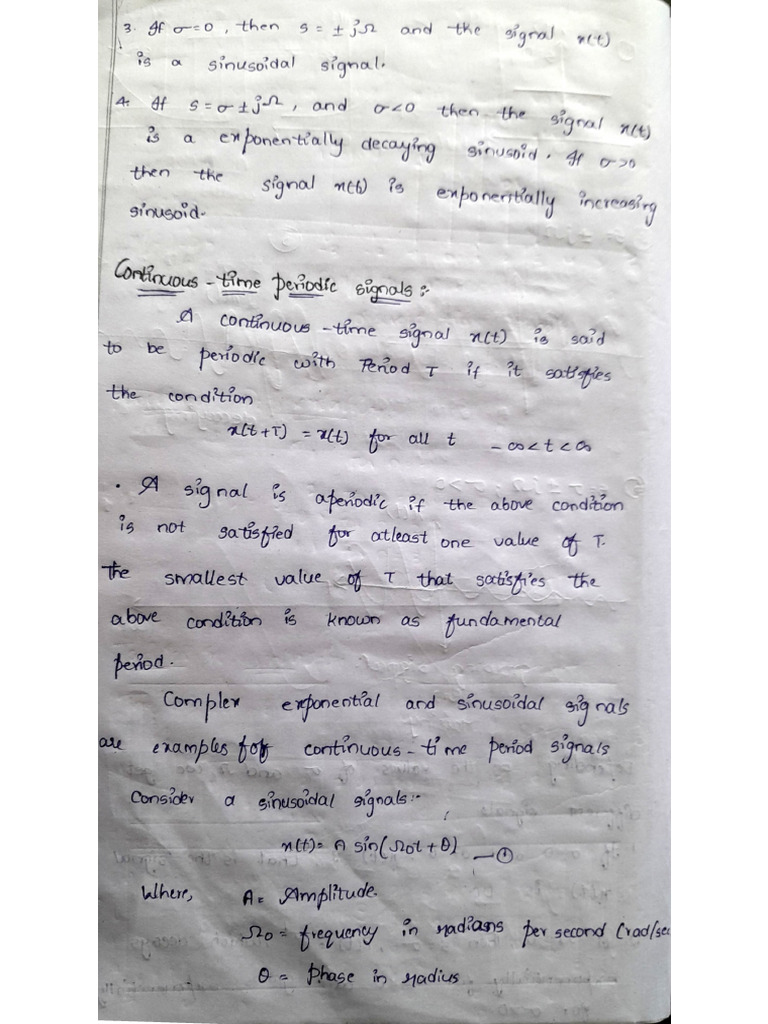 3. If σ=0, then s = ± jΩ and the signal x(t)
is a sinusoidal signal.
4. If s = σ ± jΩ, and σ<0 then the signal x(t)
is a exponentially decaying sinusoid. If σ>0
then the signal x(t) is exponentially increasing
sinusoid.
Continuous - time periodic signals :-
A continuous - time signal x(t) is said
to be periodic with Period T if it satisfies
the condition
x(t+T) = x(t) for all t -∞<t<∞
. A signal is aperiodic if the above condition
is not satisfied for atleast one value of T.
The smallest value of T that satisfies the
above condition is known as fundamental
period.
Complex exponential and sinusoidal signals
are examples for continuous - time period signals
Consider a sinusoidal signals:-
x(t)= A sin(Ω0t + θ) —①
Where, A= Amplitude
Ω0 = frequency in radians per second (rad/sec
θ = Phase in radius